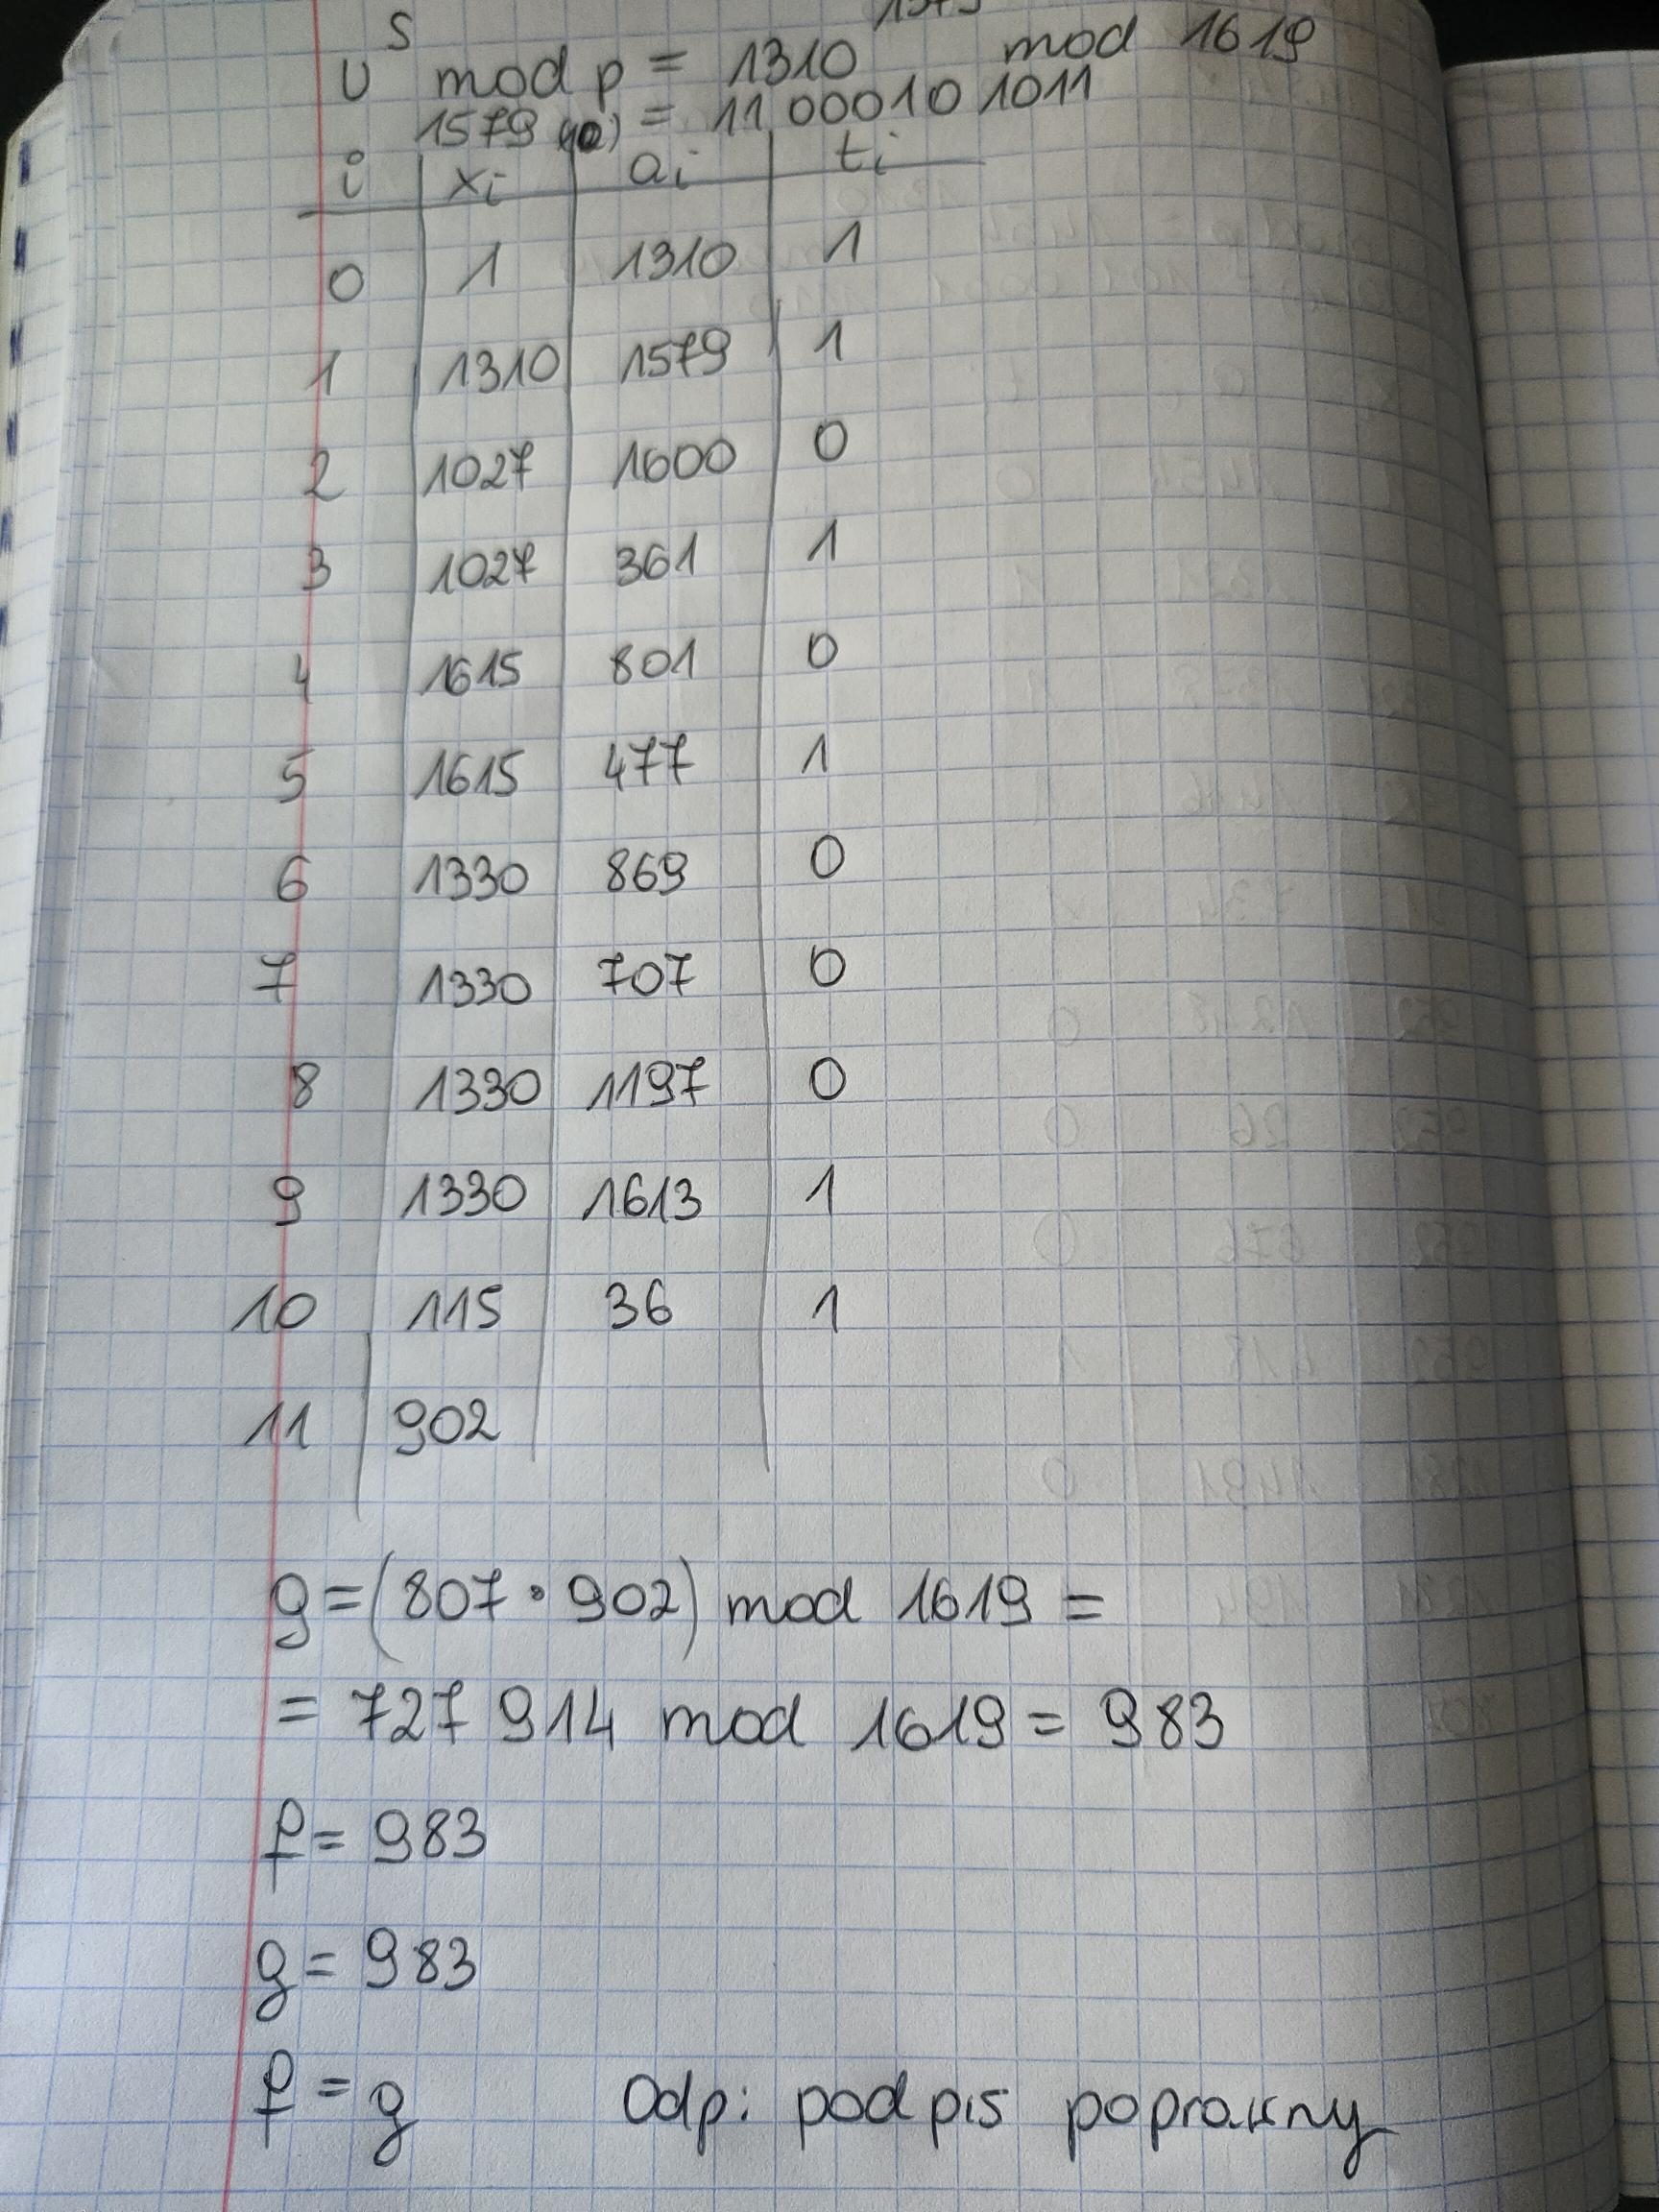 U^S mod p = 1310^1579 mod 1619
1579 (10) = 11000101011
i | xi | ai | ti
0 | 1 | 1310 | 1
1 | 1310 | 1579 | 1
2 | 1027 | 1600 | 0
3 | 1027 | 361 | 1
4 | 1615 | 801 | 0
5 | 1615 | 477 | 1
6 | 1330 | 869 | 0
7 | 1330 | 707 | 0
8 | 1330 | 1197 | 0
9 | 1330 | 1613 | 1
10 | 115 | 36 | 1
11 | 902
g = (807 · 902) mod 1619 =
= 727 914 mod 1619 = 983
f = 983
g = 983
f = g Odp: podpis poprawny